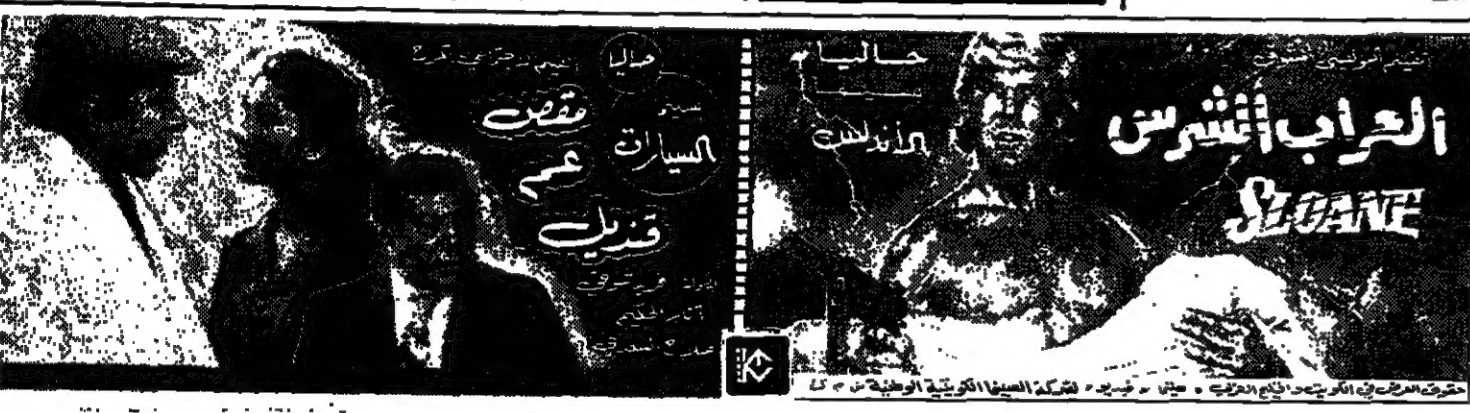 العراب الشرس
SLOANE
حاليا
سينما
الأندلس
حقوق العرض في الكويت و الخليج العربي • سينما • فيديو • لشركة السينما الكويتية الوطنية ش م ك
حاليا
سينما
السيارات
مقص
عم
قنديل
فريد شوقي